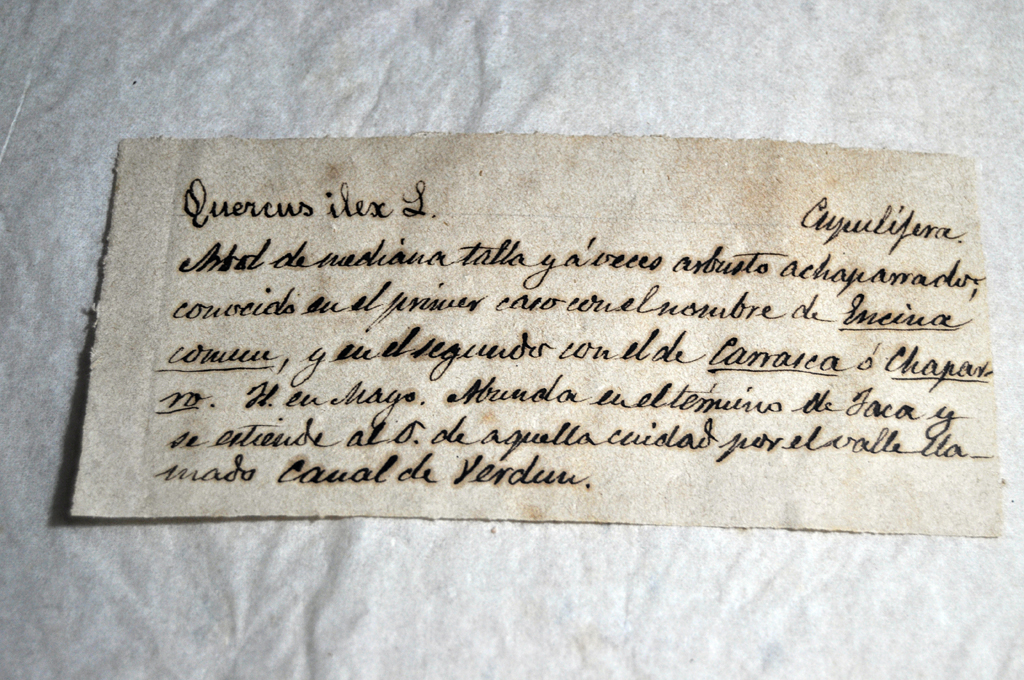 Quercus ilex L.
Cupulífera.
Arbol de mediana talla y á veces arbusto achaparrado;
conocido en el primer caso con el nombre de Encina
comun, y en el segundo con el de Carrasca ó Chapar-
ro. Fl. en Mayo. Abunda en el término de Jaca y
se estiende al O. de aquella cuidad por el valle lla-
mado Canal de Verdun.